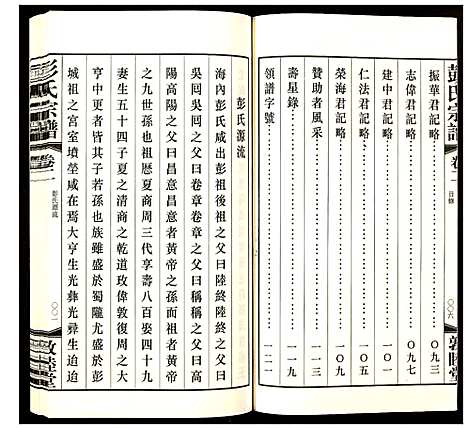 彭氏宗譜
卷二
目錄
〇〇六
敦睦堂
振華君記略……………………〇九三
志偉君記略……………………〇九七
建中君記略……………………一〇一
仁法君記略……………………一〇五
榮海君記略……………………一〇九
贊助者風采……………………一一三
壽星錄…………………………一一九
領譜字號………………………一二一
彭氏源流
海內彭氏咸出彭祖後祖之父曰陸終陸終之父曰
吳囘吳囘之父曰卷章卷章之父曰稱稱之父曰高
陽高陽之父曰昌意昌意者黃帝之孫而祖者黃帝
之九世孫也祖歷夏商周三代享壽八百娶四十九
妻生五十四子也夏之清商之乾道玫偉敦復周之大
亨中更者皆其子若孫也支族雖盛於蜀隴尤盛於彭
城祖之宮室墳塋咸在焉大亨生光彝光彝生迨迨
彭氏宗譜
卷二
彭氏源流
〇〇一
敦睦堂